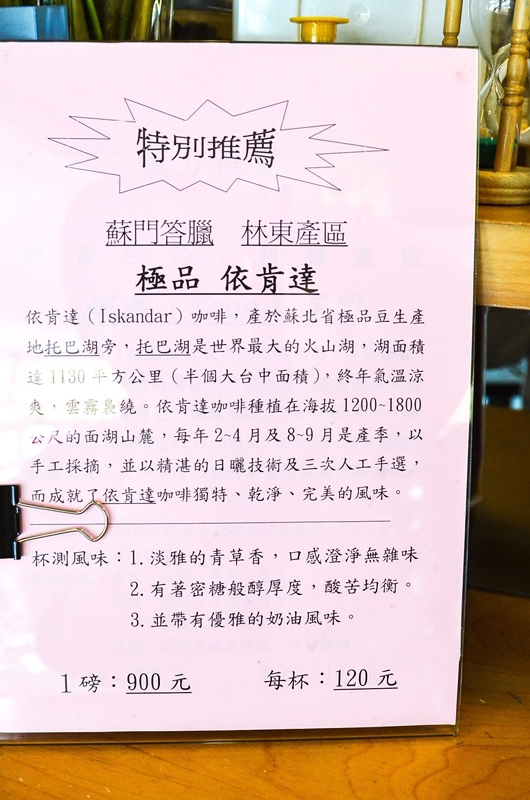 特別推薦
蘇門答臘 林東產區
極品 依肯達
依肯達（Iskandar）咖啡，產於蘇北省極品豆生產
地托巴湖旁，托巴湖是世界最大的火山湖，湖面積
達1130平方公里（半個大台中面積），終年氣溫涼
爽，雲霧裊繞。依肯達咖啡種植在海拔1200~1800
公尺的面湖山麓，每年2~4月及8~9月是產季，以
手工採摘，並以精湛的日曬技術及三次人工手選，
而成就了依肯達咖啡獨特、乾淨、完美的風味。
杯測風味：1.淡雅的青草香，口感澄淨無雜味
2.有著密糖般醇厚度，酸苦均衡。
3.並帶有優雅的奶油風味。
1磅：900元 每杯：120元